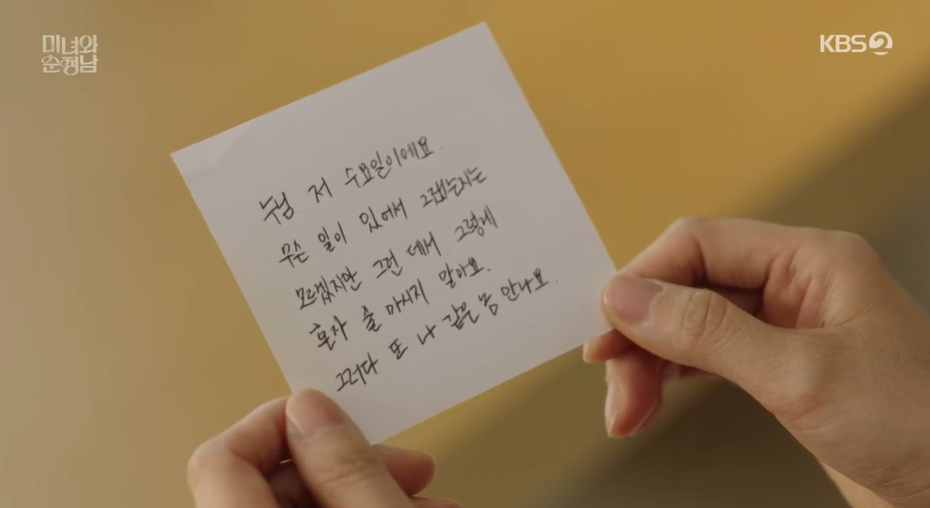 미녀와
순정남
KBS2
누님 저 수요일이에요.
무슨 일이 있어서 그랬는지는
모르겠지만 그런 데서 그렇게
혼자 술 마시지 말아요.
그러다 또 나 같은 놈 만나요.